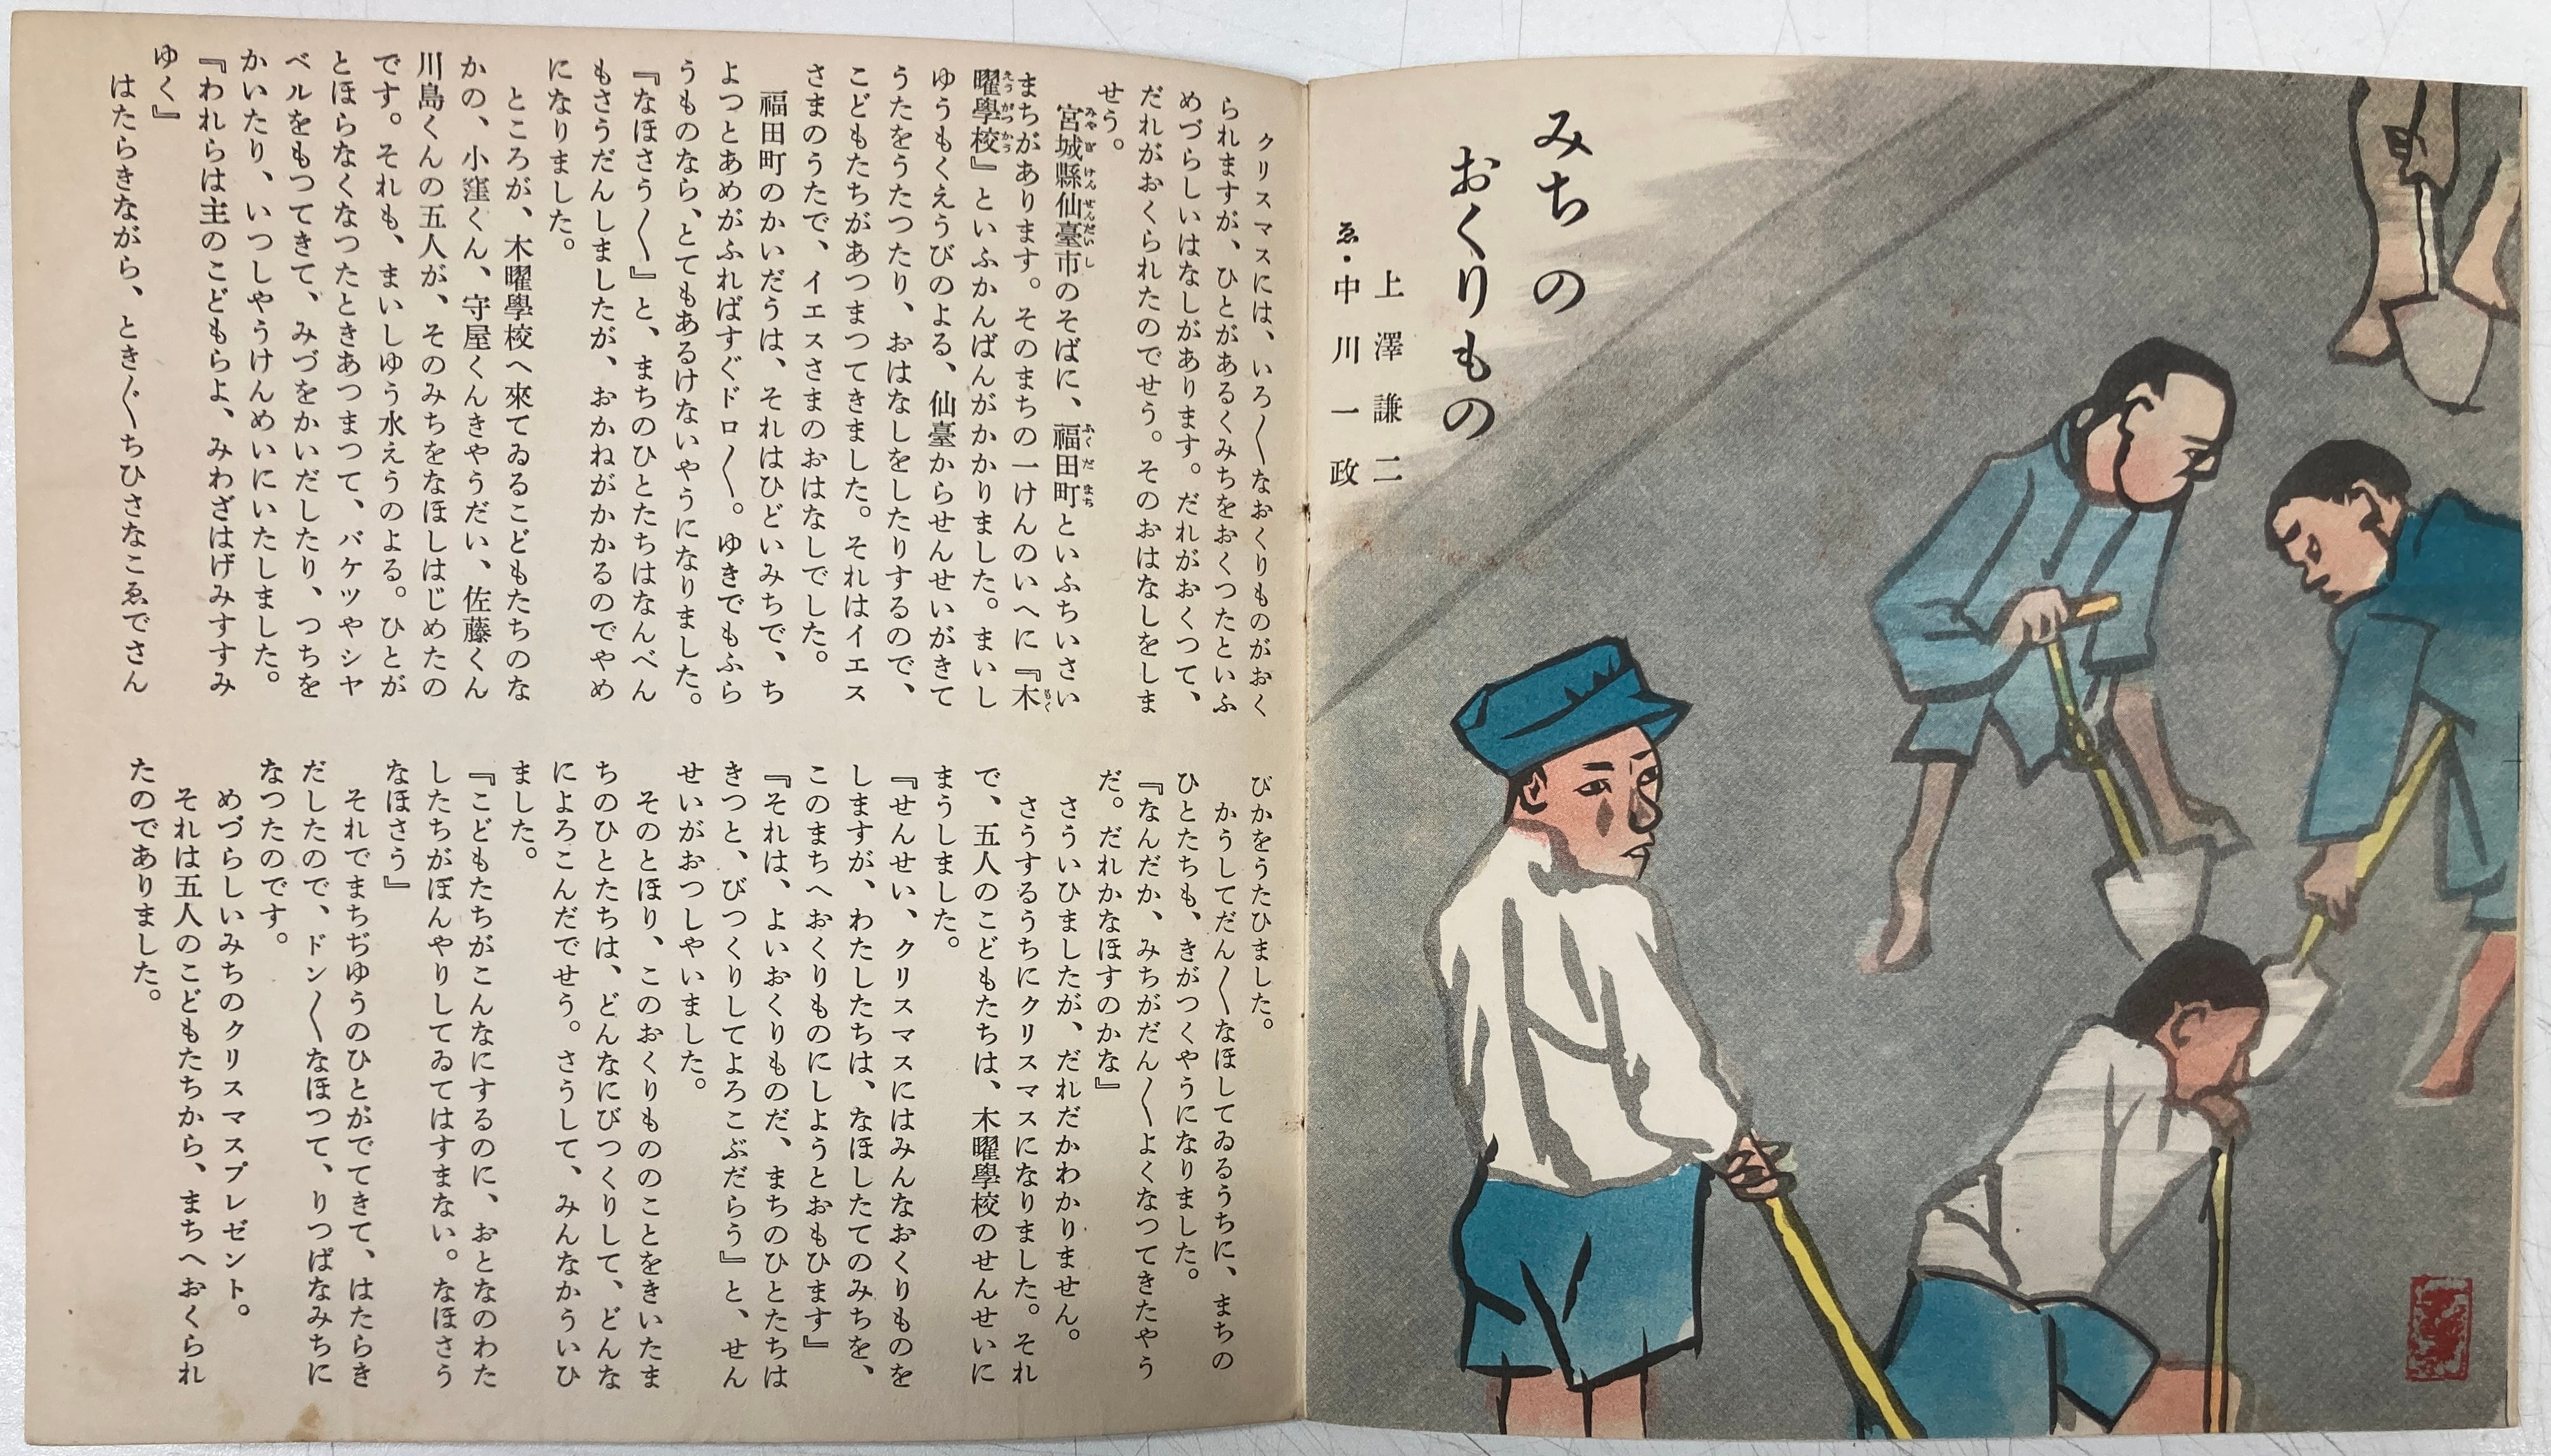 みちの
おくりもの
上澤謙二
ゑ・中川一政
クリスマスには、いろ〳〵なおくりものがおく
られますが、ひとがあるくみちをおくつたといふ
めづらしいはなしがあります。だれがおくつて、
だれがおくられたのでせう。そのおはなしをしま
せう。
宮城縣仙臺市のそばに、福田町といふちいさい
まちがあります。そのまちの一けんのいへに『木
曜學校』といふかんばんがかかりました。まいし
ゆうもくえうびのよる、仙臺からせんせいがきて
うたをうたつたり、おはなしをしたりするので、
こどもたちがあつまつてきました。それはイエス
さまのうたで、イエスさまのおはなしでした。
福田町のかいだうは、それはひどいみちで、ち
よつとあめがふればすぐドロ〳〵。ゆきでもふら
うものなら、とてもあるけないやうになりました。
『なほさう〳〵』と、まちのひとたちはなんべん
もさうだんしましたが、おかねがかかるのでやめ
になりました。
ところが、木曜學校へ來てゐるこどもたちのな
かの、小窪くん、守屋くんきやうだい、佐藤くん
川島くんの五人が、そのみちをなほしはじめたの
です。それも、まいしゆう水えうのよる。ひとが
とほらなくなつたときあつまつて、バケツやシヤ
ベルをもつてきて、みづをかいだしたり、つちを
かいたり、いつしやうけんめいにいたしました。
『われらは主のこどもらよ、みわざはげみすすみ
ゆく』
はたらきながら、とき〴〵ちひさなこゑでさん
びかをうたひました。
かうしてだん〳〵なほしてゐるうちに、まちの
ひとたちも、きがつくやうになりました。
『なんだか、みちがだん〳〵よくなつてきたやう
だ。だれかなほすのかな』
さういひましたが、だれだかわかりません。
さうするうちにクリスマスになりました。それ
で、五人のこどもたちは、木曜學校のせんせいに
まうしました。
『せんせい、クリスマスにはみんなおくりものを
しますが、わたしたちは、なほしたてのみちを、
このまちへおくりものにしようとおもひます』
『それは、よいおくりものだ、まちのひとたちは
きつと、びつくりしてよろこぶだらう』と、せん
せいがおつしやいました。
そのとほり、このおくりもののことをきいたま
ちのひとたちは、どんなにびつくりして、どんな
によろこんだでせう。さうして、みんなかういひ
ました。
『こどもたちがこんなにするのに、おとなのわた
したちがぼんやりしてゐてはすまない。なほさう
なほさう』
それでまちぢゆうのひとがでてきて、はたらき
だしたので、ドン〳〵なほつて、りつぱなみちに
なつたのです。
めづらしいみちのクリスマスプレゼント。
それは五人のこどもたちから、まちへおくられ
たのでありました。